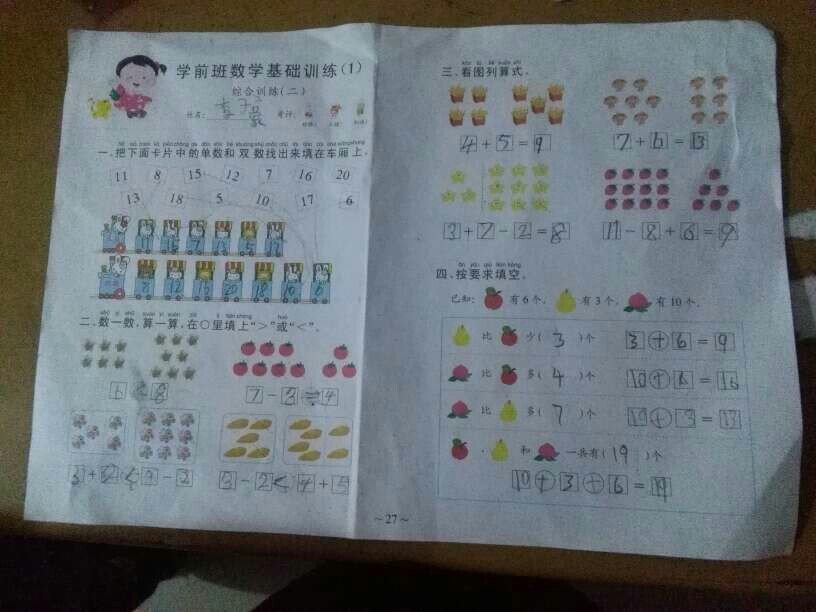 学前班数学基础训练(1)
综合训练(二)
姓名: 李子
一、把下面卡片中的单数和双数找出来填在车厢上。
11 8 15 12 7 16 20
13 18 5 10 17 6
11 15 7 13 5 17
8 12 16 20 18 10 6
二、数一数,算一算,在○里填上“>”或“<”。
6 < 8
7-3=4
3-2<4+5
~27~
三、看图列算式。
4+5=9 7+6=13
3+7-2=8 11-8+6=9
四、按要求填空。
已知: 有6个, 有3个, 有10个。
比 少( 3 )个 3+6=9
比 多( 4 )个 10+6=16
比 多( 7 )个 10+3=13
、 和 一共有( 19 )个
10+3+6=19